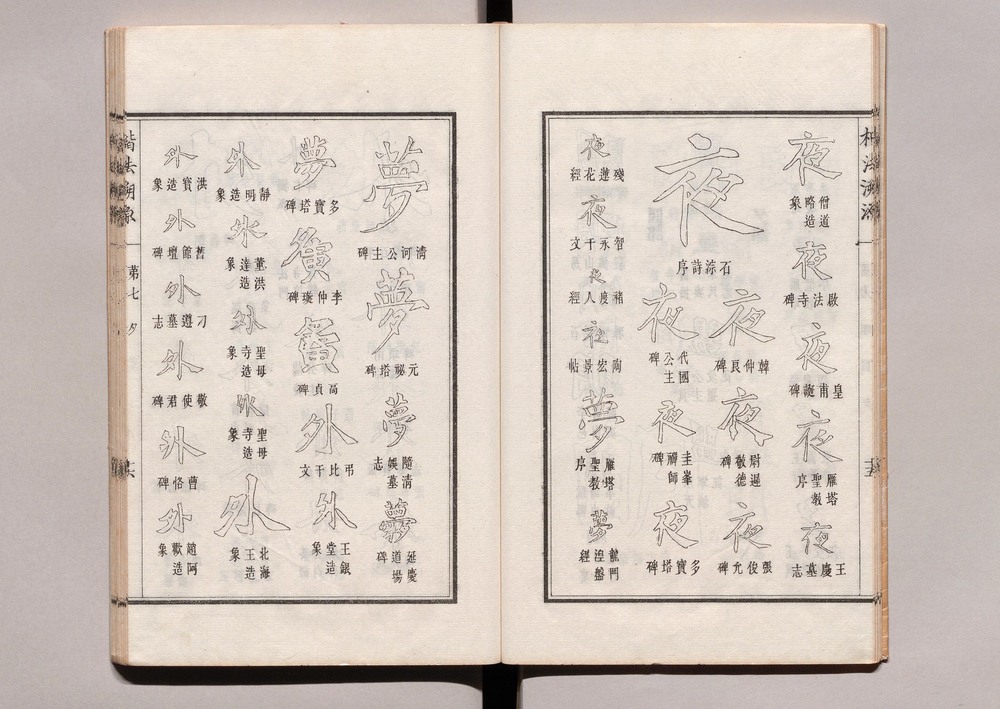 夜
僧道略造象
夜
啟法寺碑
夜
皇甫誕碑
夜
雁塔聖教序
夜
王慶墓志
夜
石淙詩序
夜
韓仲良碑
夜
尉遲敬德碑
夜
張俊允碑
夜
代國公主碑
夜
圭峯禪師碑
夜
多寶塔碑
夜
蓮花經
夜
智永千文
夜
褚度人經
夜
陶宏景帖
夢
雁塔聖教序
夢
龍門湼盤經
夢
清河公主碑
夢
元秘塔碑
夢
隨清娛墓志
夢
延慶道場碑
夢
多寶塔碑
夢
李仲璇碑
夢
高貞碑
外
弔比干文
外
王銀堂造象
外
靜明造象
外
董洪達造象
外
聖母寺造象
外
聖母寺造象
外
北海王造象
外
洪寶造象
外
舊館壇碑
外
刁遵墓志
外
敬使君碑
外
曹恪碑
外
趙阿歡造象
楷法溯源
第七
夕